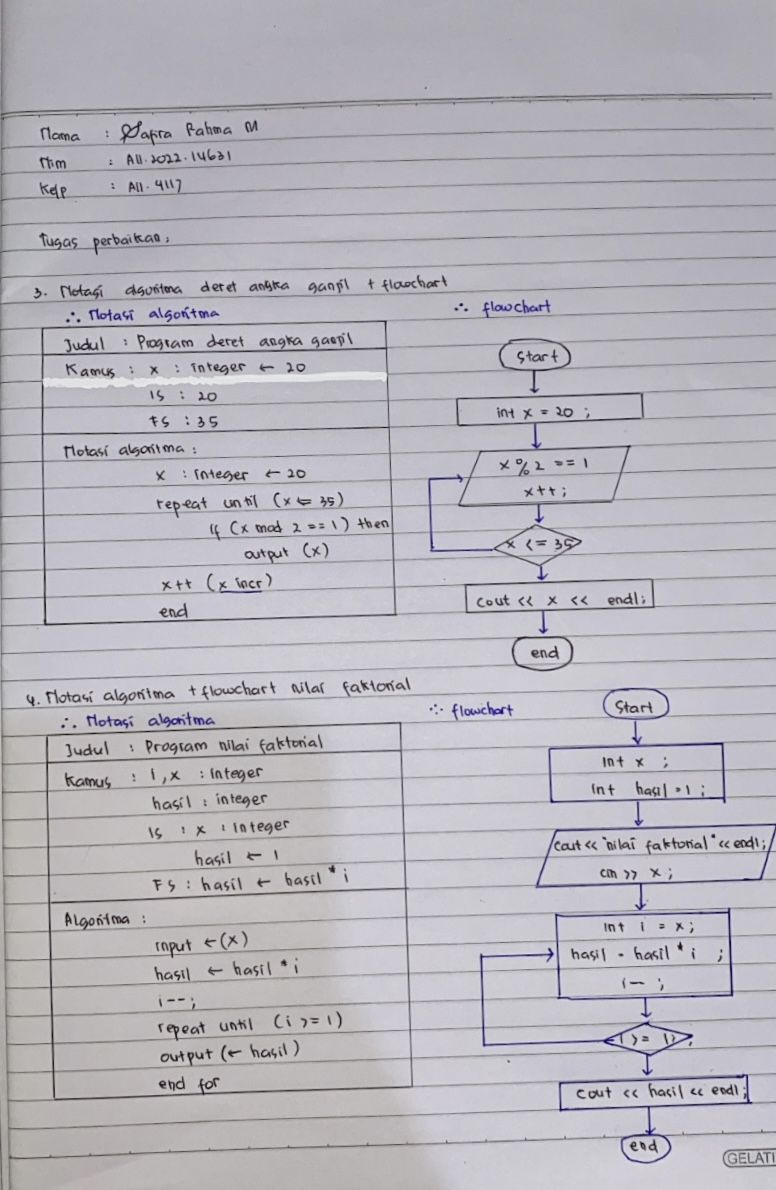 Nama : Safira Rahma M
Nim : A11.2022.14631
Kelp : A11.4117
Tugas perbaikan:
3. Notasi algoritma deret angka ganjil + flowchart
∴ Notasi algoritma
Judul : Program deret angka ganjil
Kamus : x : integer ← 20
IS : 20
FS : 35
Notasi algoritma :
x : integer ← 20
repeat until (x <= 35)
if (x mod 2 == 1) then
output (x)
x++ (x incr)
end
∴ flowchart
Start
int x = 20 ;
x % 2 == 1
x++ ;
x <= 35
cout << x << endl;
end
4. Notasi algoritma + flowchart nilai faktorial
∴ Notasi algoritma
Judul : Program nilai faktorial
Kamus : i, x : integer
hasil : integer
IS : x : integer
hasil ← 1
FS : hasil ← hasil * i
Algoritma :
input ← (x)
hasil ← hasil * i
i--;
repeat until (i >= 1)
output (← hasil)
end for
∴ flowchart
Start
int x ;
int hasil = 1 ;
cout << "nilai faktorial" << endl;
cin >> x ;
int i = x ;
hasil = hasil * i ;
i-- ;
i >= 1 ;
cout << hasil << endl;
end
GELATI